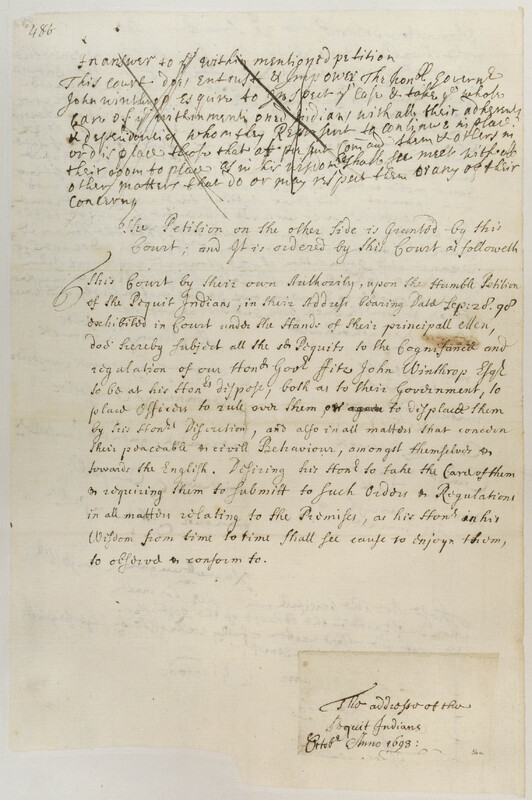 486
In answer to ye within mentioned petition
This Court does Entrust & impower The honble Governr
John Winthrop Esquire to inspect ye Case & take ye whole
Care of ye pertinments oned Indians with all their adherents
& dependencies whom they Represent to continue in place
or displace those that at present Comand them & others in
their room to place as in his wisdom shall see meet with respect to
other matters that do or may respect them or any of their
Concerns
The Petition on the other side is Granted by this
Court; and It is ordered by this Court as followeth
This Court by their own Authority, upon the Humble Petition
of the Pequit Indians, in their Address bearing Date Sep: 28. 98
exhibited in Court under the Hands of their principall Men,
doe hereby subject all the sd Pequits to the Cognisance and
regulation of our Honrd Govr ffitz John Winthrop Esqr
to be at his Honrs dispose, both as to their Government, to
place Officers to rule over them or to displace them
by his Honrs Discretion, and also in all matters that concern
their peaceable & civill Behaviour, amongst themselves &
towards the English. Desiring his Honr to take the Care of them
& requiring them to submitt to such Orders & Regulations
in all matters relating to the Premises, as his Honr in his
Wisdom from time to time shall see cause to enjoyn them,
to observe & conform to.
The addresse of the
Pequit Indians
Octobr Anno 1698: